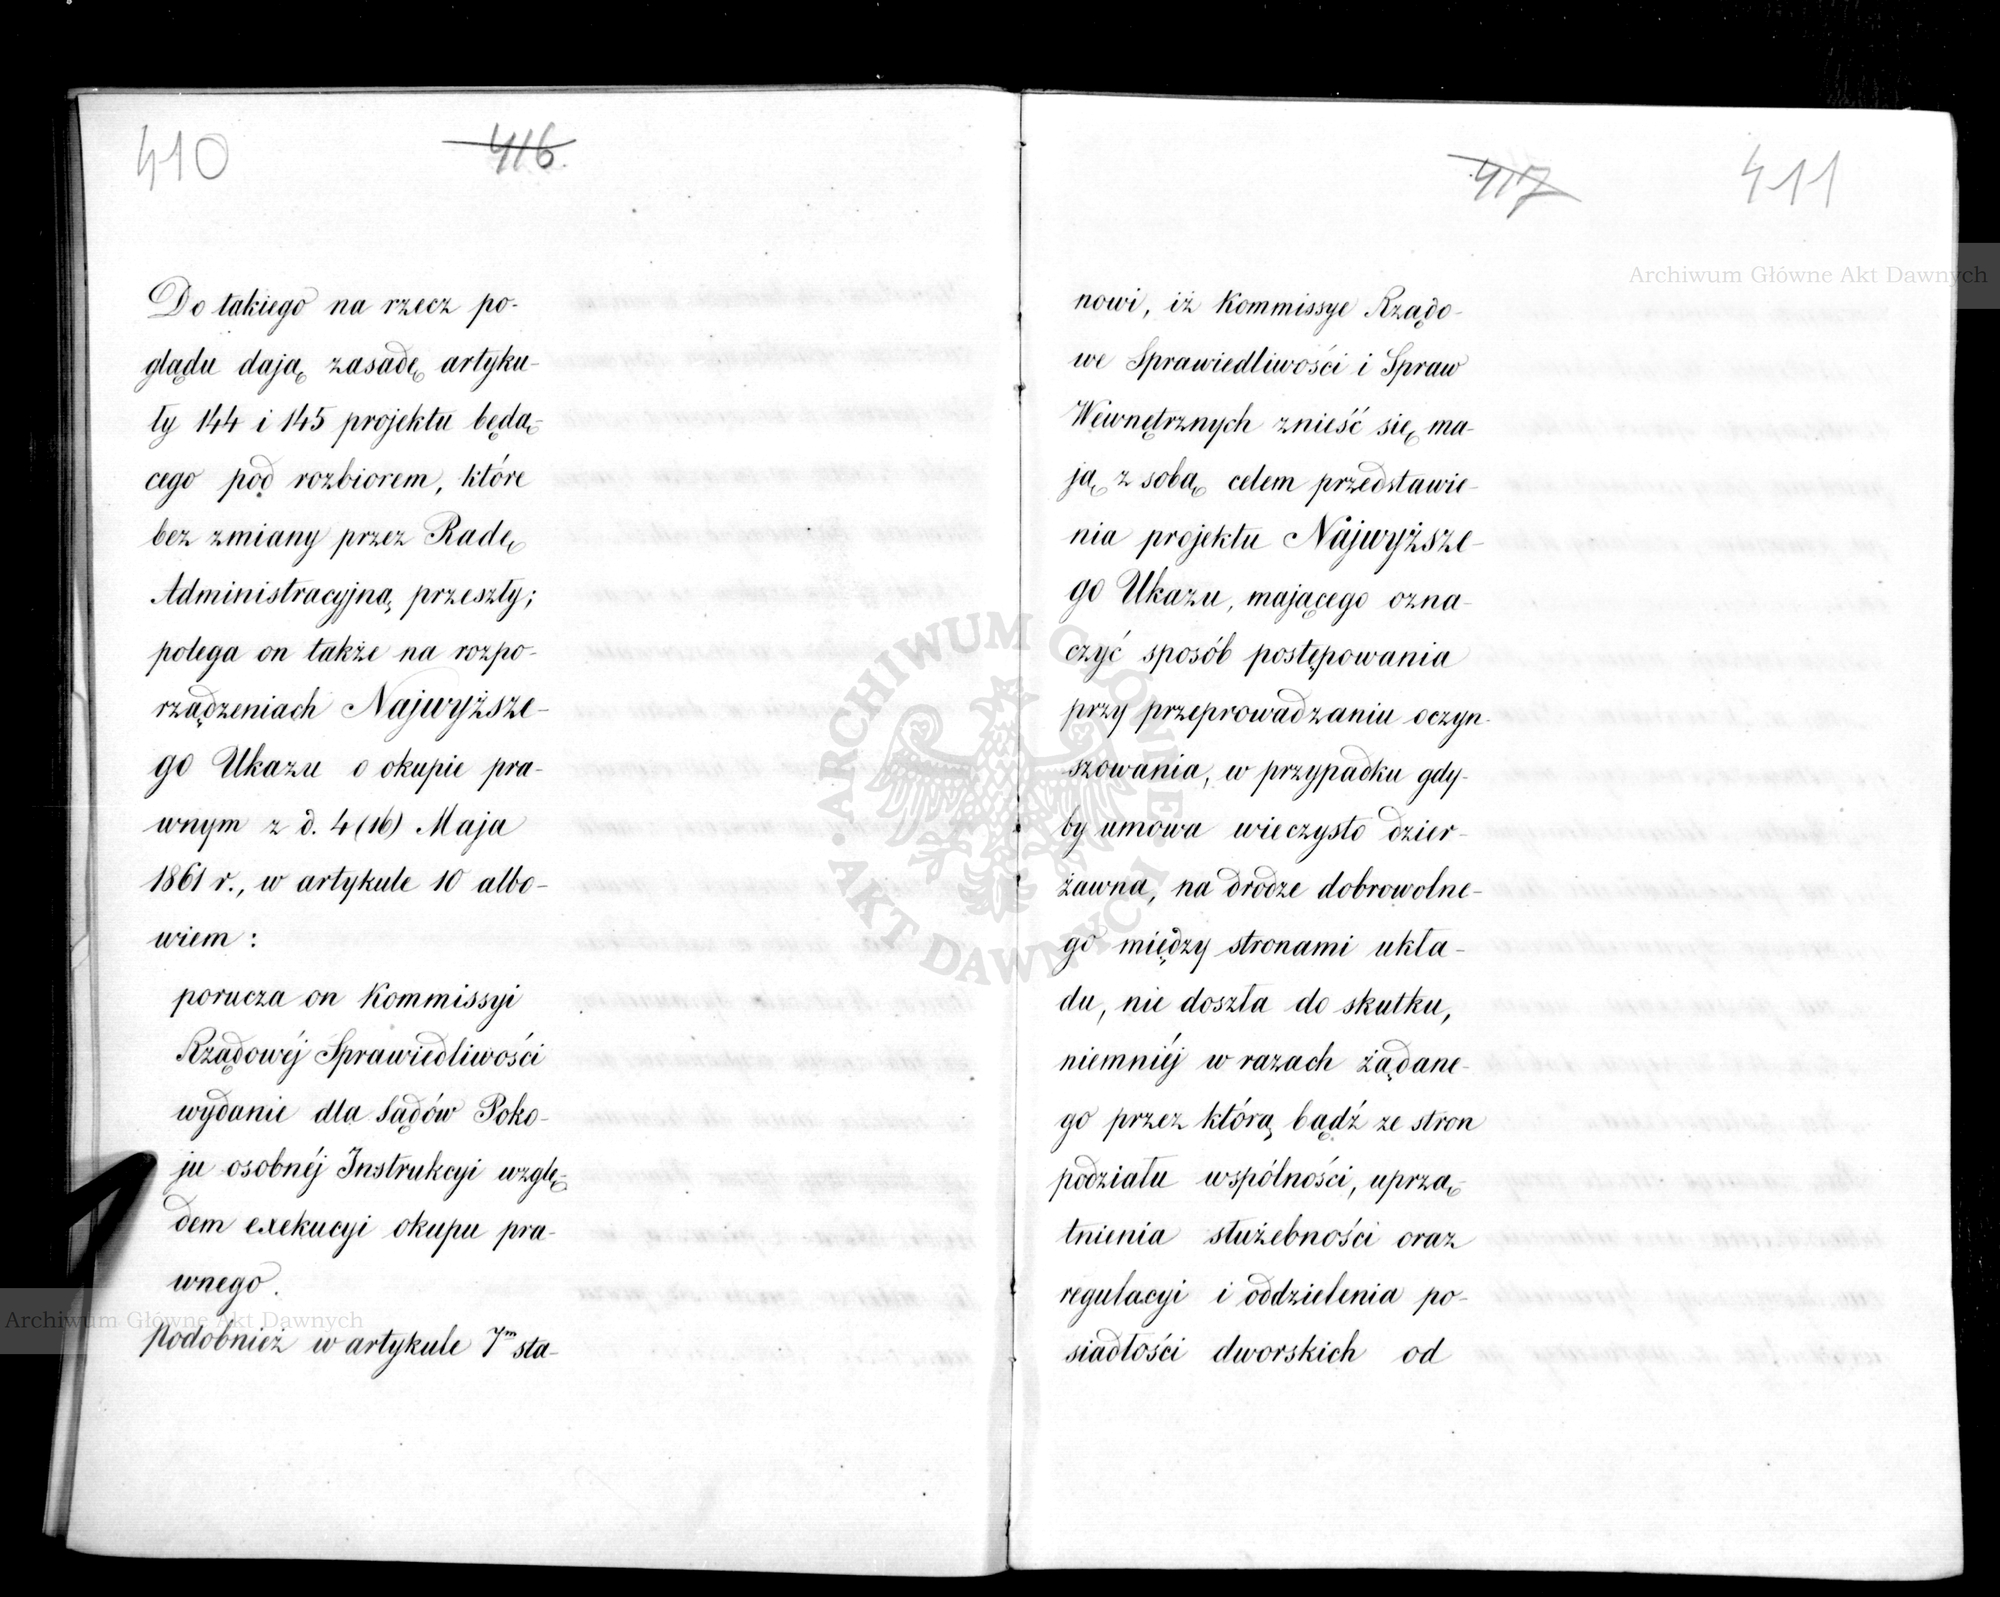 410
416.
Do takiego na rzecz po-
glądu dają zasadę artyku-
ły 144 i 145 projektu będą-
cego pod rozbiorem, które
bez zmiany przez Radę
Administracyjną przeszły;
polega on także na rozpo-
rządzeniach Najwyższe-
go Ukazu o okupie pra-
wnym z d. 4 (16) Maja
1861 r., w artykule 10 albo-
wiem:
porucza on Kommissyi
Rządowéj Sprawiedliwości
wydanie dla Sądów Poko-
ju osobnéj Instrukcyi wzglę-
dem exekucyi okupu pra-
wnego.
Podobnież w artykule 7m sta-
417
411
nowi, iż Kommissye Rządo-
we Sprawiedliwości i Spraw
Wewnętrznych znieść się ma-
ją z sobą celem przedstawie-
nia projektu Najwyższe-
go Ukazu, mającego ozna-
czyć sposób postępowania
przy przeprowadzaniu oczyn-
szowania, w przypadku gdy-
by umowa wieczysto dzier-
żawna, na drodze dobrowolne-
go między stronami ukła-
du, nie doszła do skutku,
niemniéj w razach żądane-
go przez którą bądź ze stron
podziału wspólności, uprzą-
tnienia służebności oraz
regulacyi i oddzielenia po-
siadłości dworskich od
Archiwum Główne Akt Dawnych
Archiwum Główne Akt Dawnych
ARCHIWUM GŁÓWNE AKT DAWNYCH